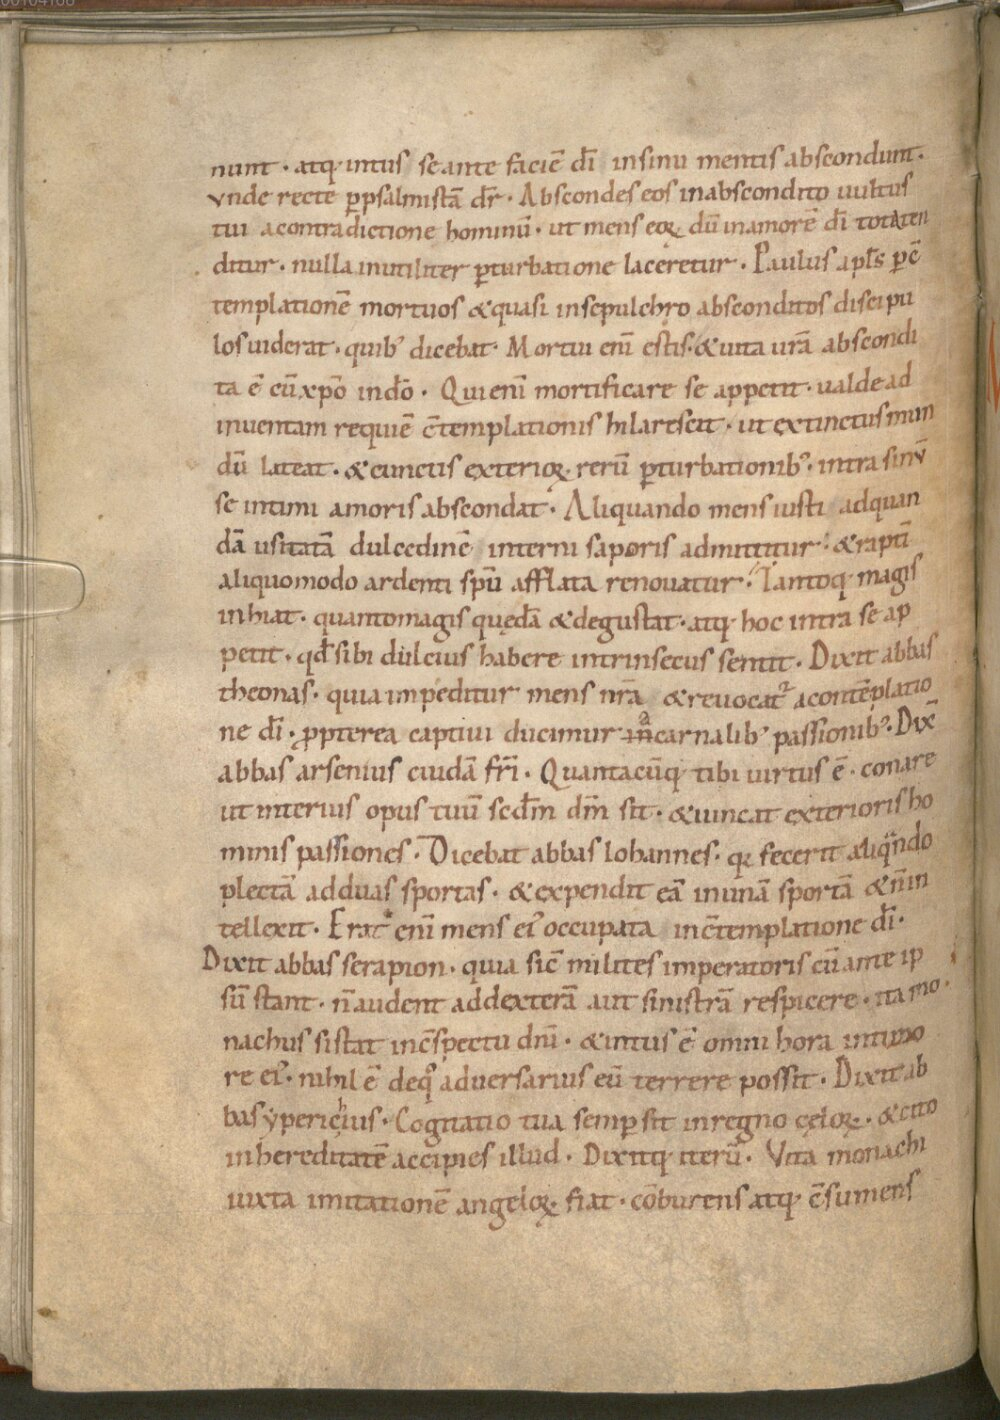 nunt · atq; intus se ante faciē dī in sinu mentis abscondunt ·
vnde recte p̱ psalmistā dr̄ · Abscondes eos in abscondito uultus
tui a contradictione hominū · ut mens eoꝝ dū in amorē dī tota ten
ditur · nulla inutiliter p̱turbatione laceretur · Paulus apl̄s p̱ c̄
templationē mortuos & quasi in sepulchro absconditos discipu
los uiderat · quib; dicebat · Mortui enī estis · & uita urā abscondi
ta ē cū xpō in dō · Qui enī mortificare se appetit · ualde ad
inuentam requiē c̄templationis hilarescit · ut extinctus mun
dū lateat · & cunctis exterioꝝ rerū p̱turbationib; · intra sinū
se intimi amoris abscondat · Aliquando mens iusti ad quan
dā usitatā dulcedinē interni saporis admittitur · & raptī
aliquomodo ardenti spū afflata renouatur · Tantoq; magis
inhiat · quantomagis quędā & degustat · atq; hoc intra se ap
petit · qđ sibi dulcius habere intrinsecus sentit · Dixit abbas
theonas · quia impeditur mens nrā & reuocat᷑ a contēplatio
ne dī · ꝓpterea captiui ducimur in a carnalib; passionib; · Dix̄
abbas arsenius cuidā frī · Quantacūq; tibi uirtus ē · conare
ut interius opus tuū scđm dm̄ sit · & uincat exterioris ho
minis passiones · Dicebat abbas Iohannes · q; fecerit aliqn̄do
plectā ad duas sportas · & expendit eā in unā sportā & n̄ in
tellexit · Erat enī mens ei᷒ occupata in c̄templatione dī ·
Dixit abbas serapion · quia sic̄ milites imperatoris cū ante ip
sū stant · n̄ audent ad dexterā aut sinistrā respicere · ita mo ·
nachus si stat in c̄spectu dnī · & intus ē omni hora in timo
re ei᷒ · nihil ē de q̊ aduersarius eū terrere possit · Dixit ab
bas ẏperichius · Cogitatio tua semp̱ sit in regno cęloꝝ · & cito
in hereditatē accipies illud · Dixitq; iterū · Vita monachi
iuxta imitationē angeloꝝ fiat · cōburens atq; c̄sumens